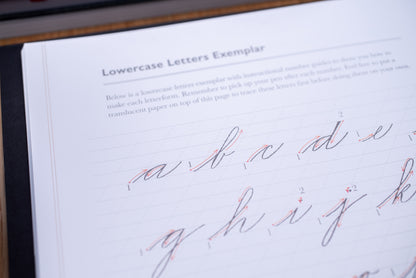 Lowercase Letters Exemplar
Below is a lowercase letters exemplar with instructional number guides to show you how to
make each letterform. Remember to pick up your pen after each number. Feel free to put a
translucent paper on top of this page to trace these letters first before doing them on your own.
a b c d e
g h i j k